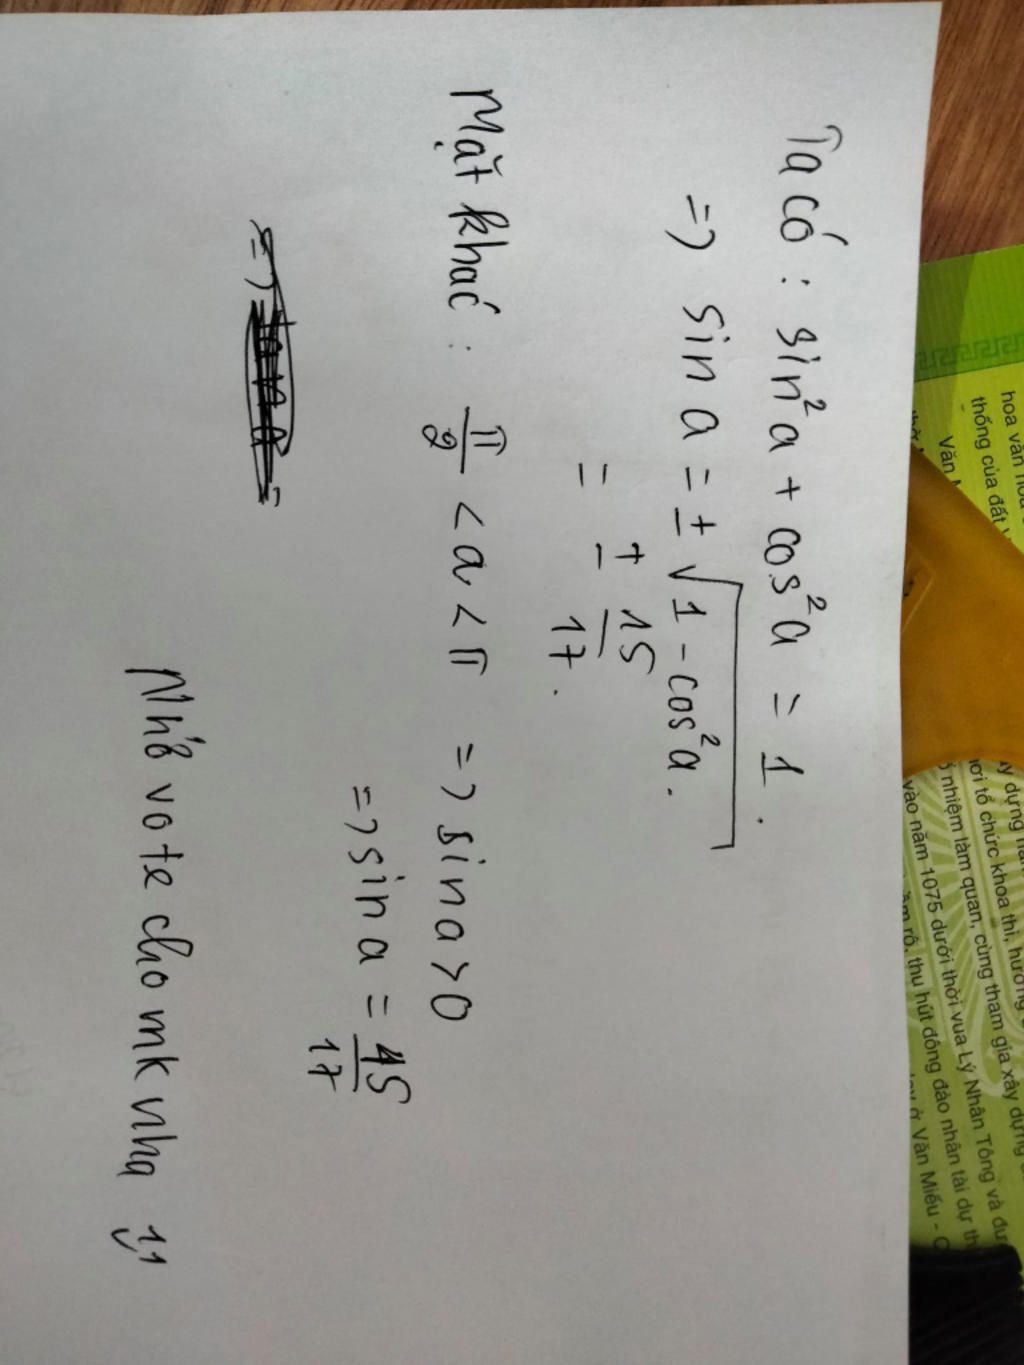 Ta có : sin²a + cos²a = 1.
=> sin a = ± √1 - cos²a.
= ± 15/17.
Mặt khác : π/2 < a < π => sin a > 0
=> sin a = 15/17
=>
Nhớ vote cho mk nha
thống của đất
Văn
tổ chức khoa thi,
nhiệm làm quan, cùng tham gia xây dựng
vào năm 1075 dưới thời vua Lý Nhân Tông và
rõ, thu hút đông đảo nhân tài dự
ở Văn Miếu -